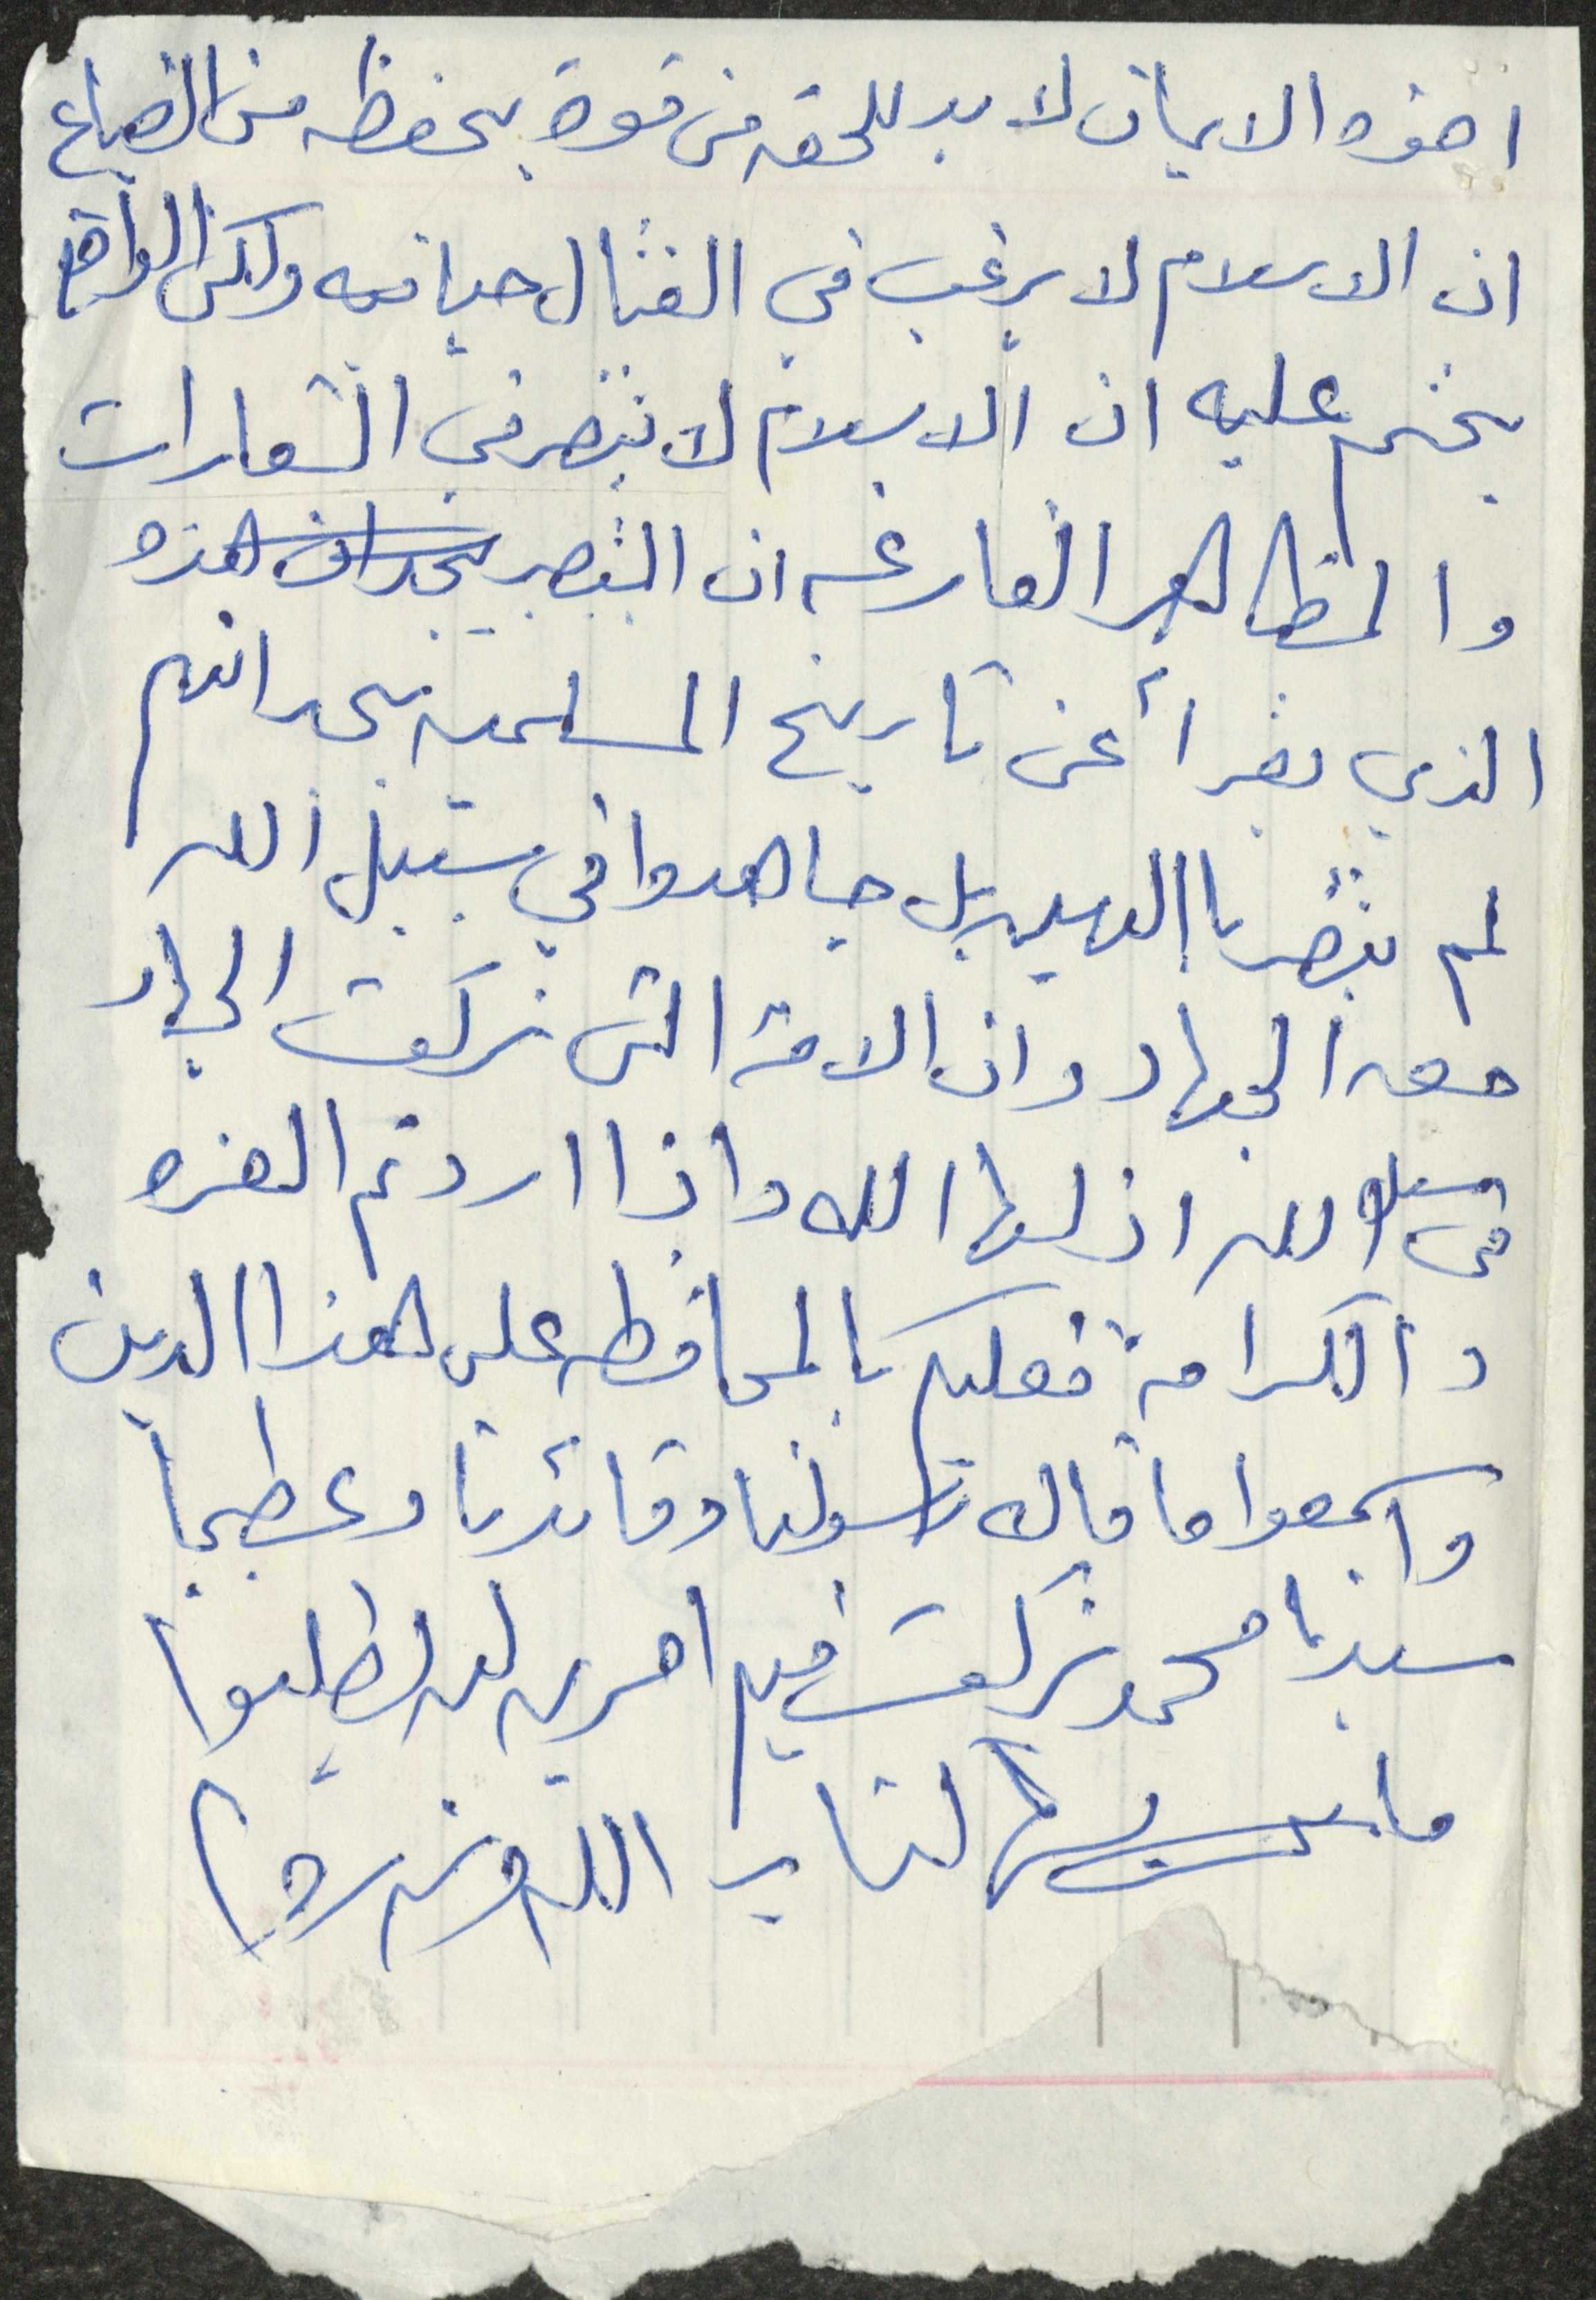 اخوه الايمان لا بد للحق من قوة يحفظه من الضياع
ان الاسلام لا يرغب في القتال حبا فيه ولكن الواقع
يختم عليه ان الاسلام لا ينتصر في الشعارات
والمظاهر الفارغه ان النصر يجد ان هذه
الذي يقرأ عن تاريخ المسلمين يجد انهم
لم ينتصر با بل جاهدوا في سبيل الله
حق الجهاد وان الامة التي تركت الجهاد
في سبيل الله اذلها الله واذا اردتم العزه
والكرامة فعليكم بالمحافظه على هذا الدين
واسمعوا ما قال رسولنا وقائدنا وعظيمنا
سيدنا محمد تركت فيكم امرين لن تظلوا
ما بها كتاب الله و